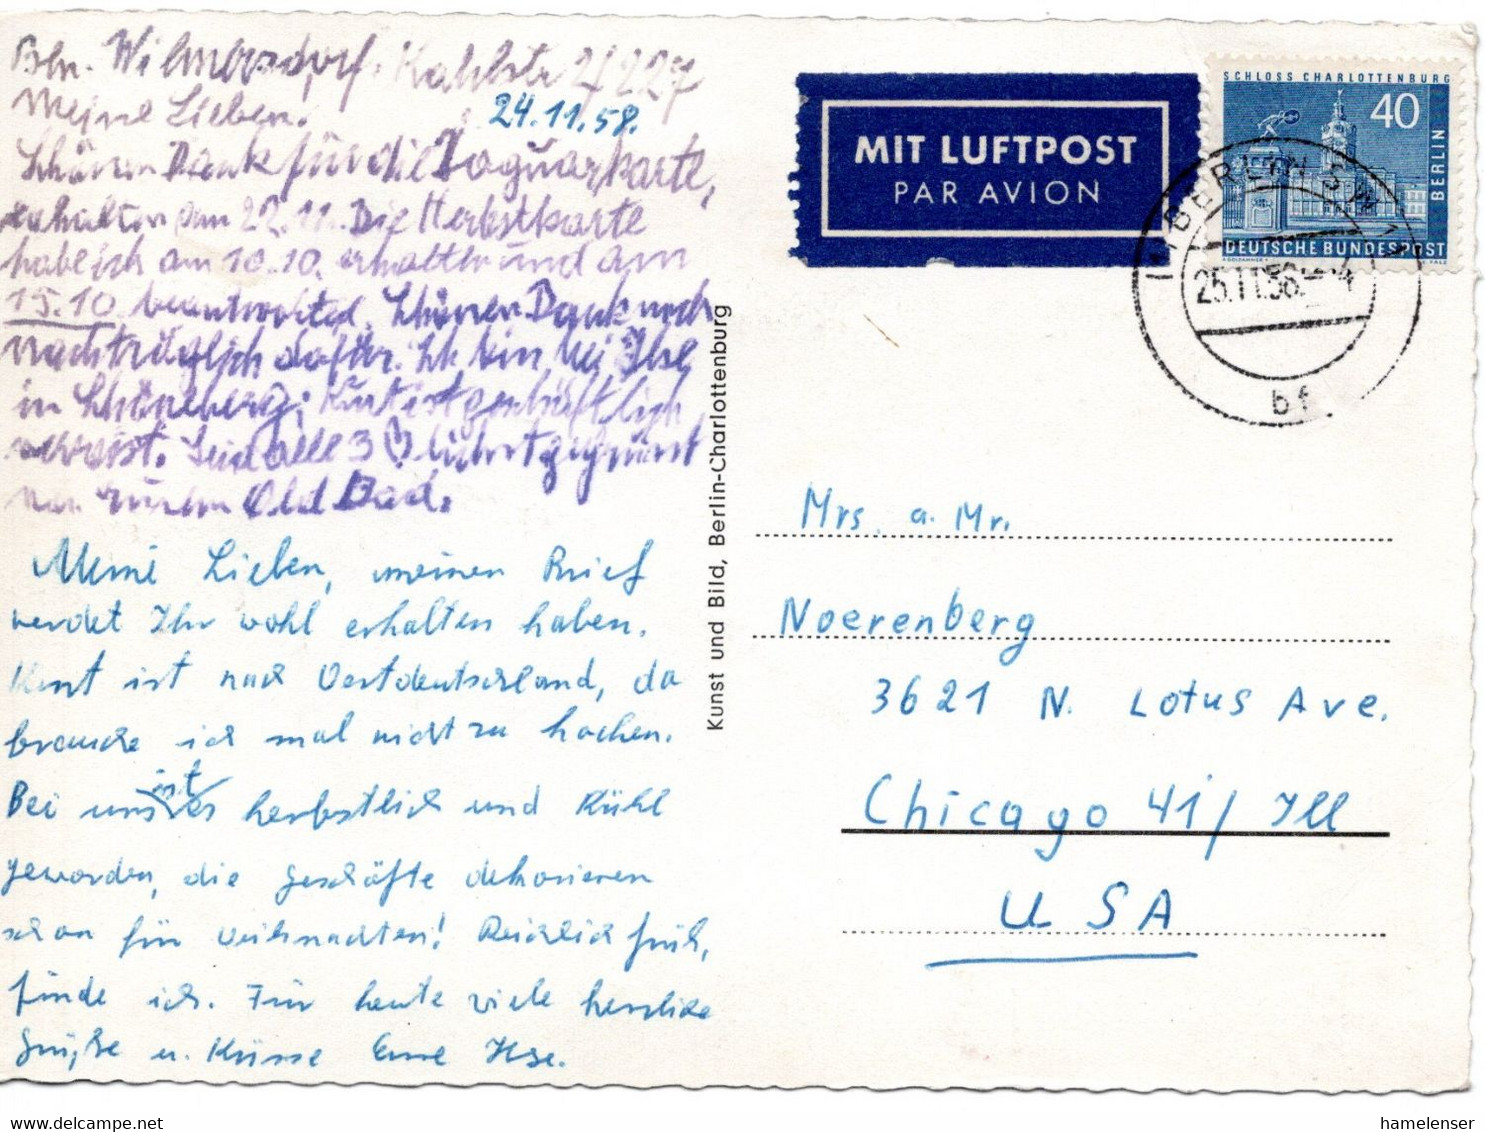 Bln. Wilmersdorf.
24.11.58.
Meine Lieben.
Schönen Dank für die Jaguarkarte,
erhalten am 22.11. Die Herbstkarte
habe ich am 10.10. erhalten und am
15.10. beantwortet. Schönen Dank noch
nachträglich dafür. Ich bin bei Ilse
in Schöneberg; Kurt ist geschäftlich
verreist. Seid alle 3 gegrüsst
von eurem Old Dad.
Meine Lieben, meinen Brief
werdet Ihr wohl erhalten haben.
Kurt ist nach Westdeutschland, da
brauche ich mal nicht zu kochen.
Bei uns ist es herbstlich und kühl
geworden, die Geschäfte dekorieren
schon für Weihnachten! Reichlich früh,
finde ich. Für heute viele herzliche
Grüße u. Küsse Eure Ilse.
Kunst und Bild, Berlin-Charlottenburg
MIT LUFTPOST
PAR AVION
SCHLOSS CHARLOTTENBURG
40
BERLIN
DEUTSCHE BUNDESPOST
BERLIN SW
25.11.58.
bf
Mrs. a. Mr.
Noerenberg
3621 N. Lotus Ave.
Chicago 41/ Ill
USA
www.delcampe.net
hamelenser